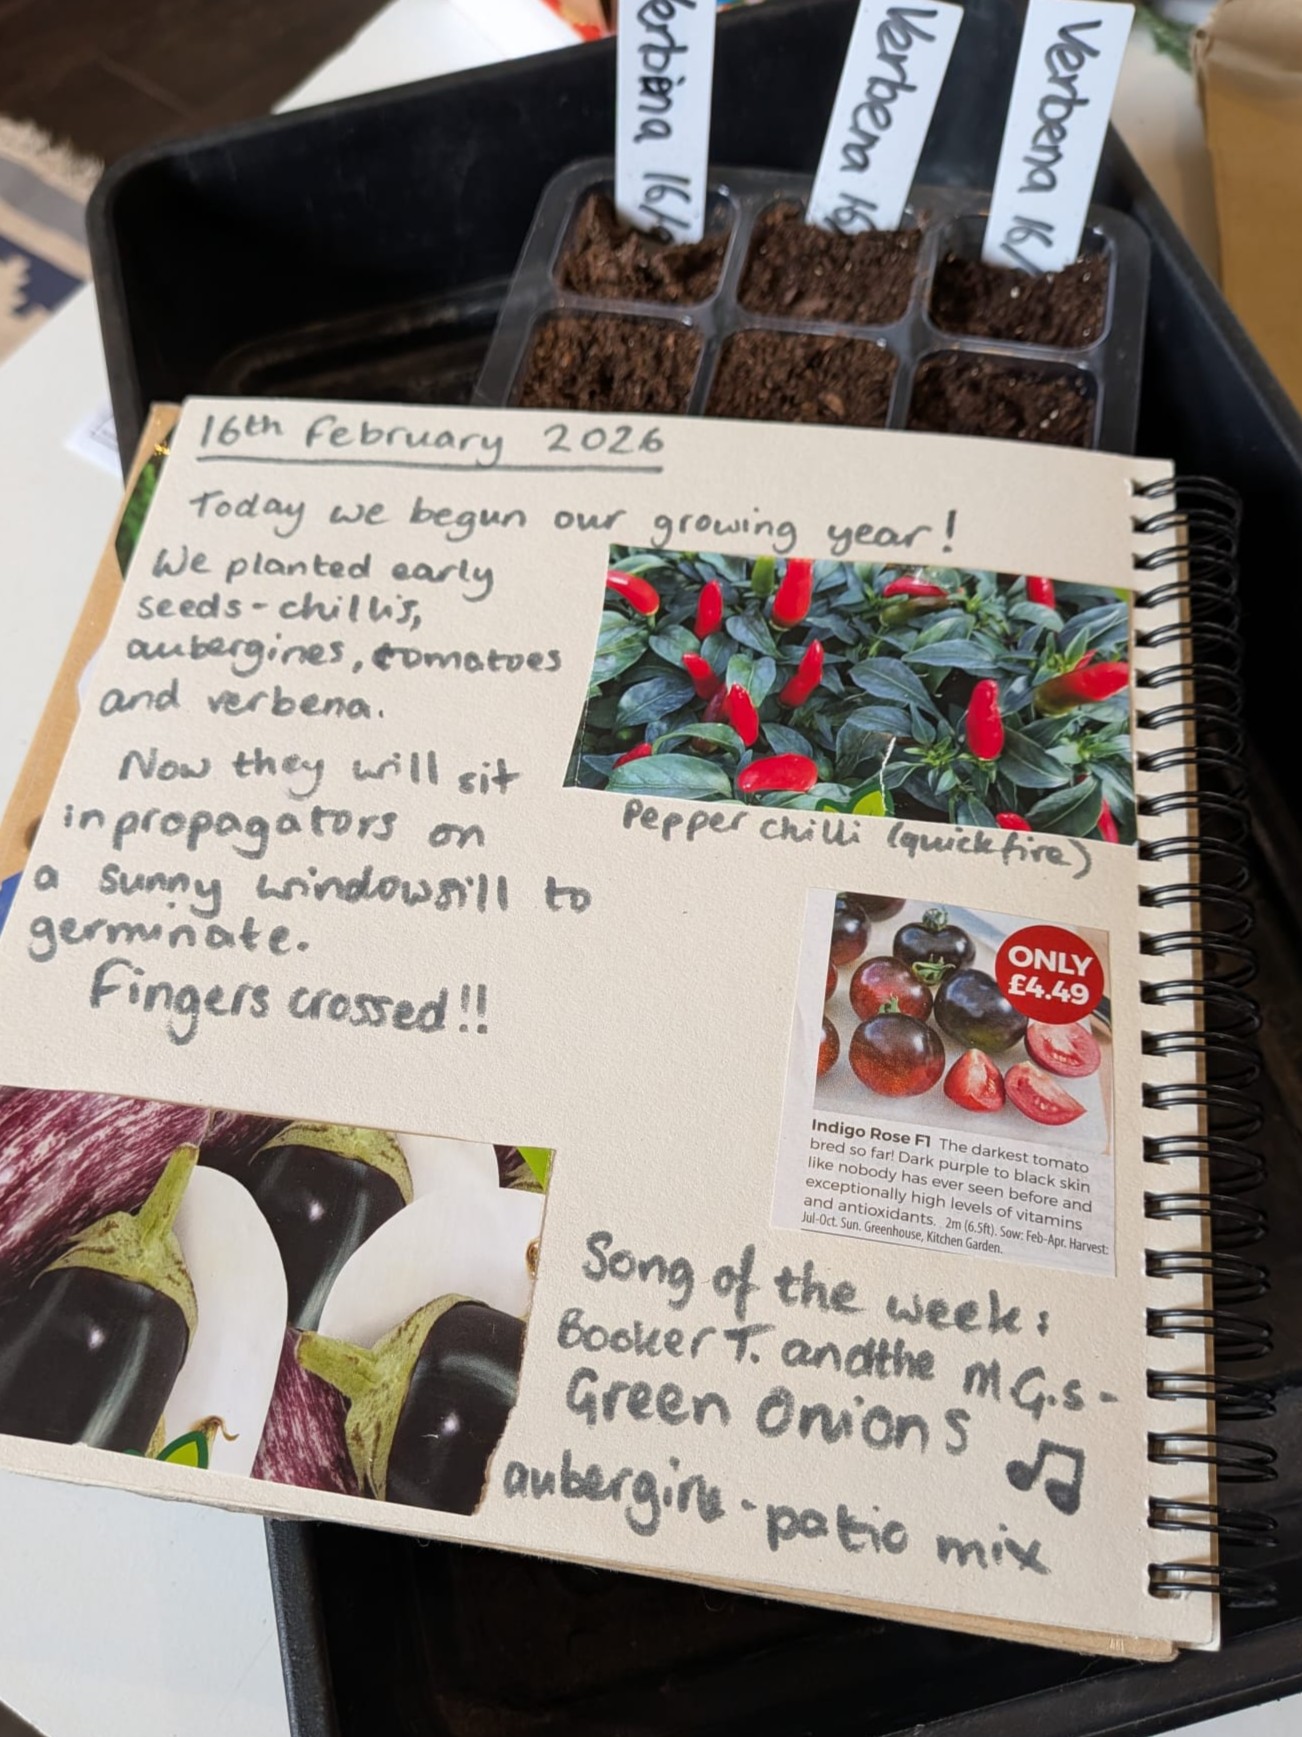 Verbena 16/
Verbena 16
Verbena 16/
16th february 2026
Today we begun our growing year!
We planted early
seeds - chillis,
aubergines, tomatoes
and verbena.
Now they will sit
in propagators on
a sunny windowsill to
germinate.
Fingers crossed!!
Pepper chilli (quickfire)
ONLY
£4.49
Indigo Rose F1 The darkest tomato
bred so far! Dark purple to black skin
like nobody has ever seen before and
exceptionally high levels of vitamins
and antioxidants. 2m (6.5ft). Sow: Feb-Apr. Harvest:
Jul-Oct. Sun. Greenhouse, Kitchen Garden.
Song of the week:
Booker T. and the M.G.s -
Green Onions
aubergine - patio mix